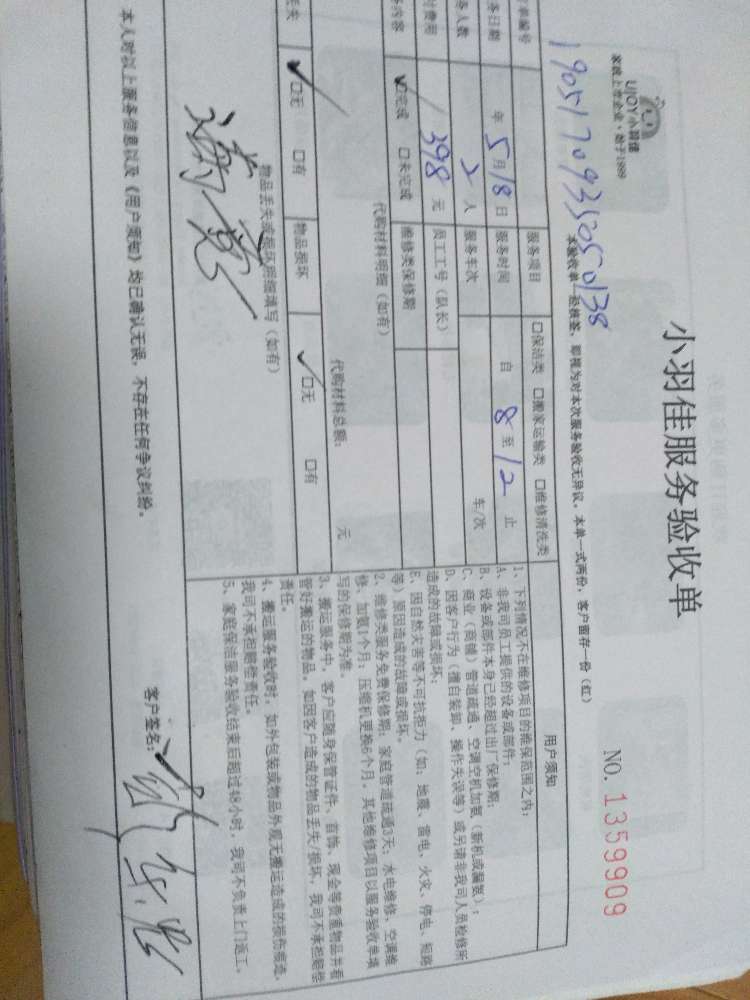 小羽佳服务验收单
UJOY小羽佳
家政上市企业·始于1999
本验收单一经核签，即视为对本次服务验收无异议。本单一式两份，客户留存一份（红）
NO. 1359909
190517093505050138
单编号
服务项目 □保洁类 □搬家运输类 □维修清洗类
务日期 年 5 月 18 日 服务时间 自 8 至 12 止
务人数 2 人 服务车次 车/次
费用 398 元 员工工号（队长）
内容 ☑完成 □未完成 维修类保修期
代购材料明细（如有）
代购材料总额： 元
丢失 ☑无 □有 物品损坏 ☑无 □有
物品丢失或损坏明细填写（如有）
用户须知
1、下列情况不在维修项目的维保范围之内：
A、非我司员工提供的设备或部件；
B、设备或部件本身已经超过出厂保修期；
C、商业（商铺）管道疏通、空调空机加氨（新机或漏氨）；
D、因客户行为（擅自装卸、操作失误等）或另请非我司人员检修所
造成的故障或损坏；
E、因自然灾害等不可抗拒力（如：地震、雷电、火灾、停电、短路
等）原因造成的故障或损坏。
2、维修类服务免费保修期：家庭管道疏通3天；水电维修、空调维
修、加氨1个月，压缩机更换6个月，其他维修项目以服务验收单填
写的保修期为准。
3、搬运服务中，客户应随身保管证件、首饰、现金等贵重物品并看
管好搬运的物品。如因客户造成的物品丢失/损坏，我司不承担赔偿
责任。
4、搬运服务验收时，如外包装或物品外观无搬运造成的损伤痕迹，
我司不承担赔偿责任。
5、家庭保洁服务验收结束后超过48小时，我司不负责上门返工。
本人对以上服务信息以及《用户须知》均已确认无误，不存在任何争议纠纷。
客户签名：